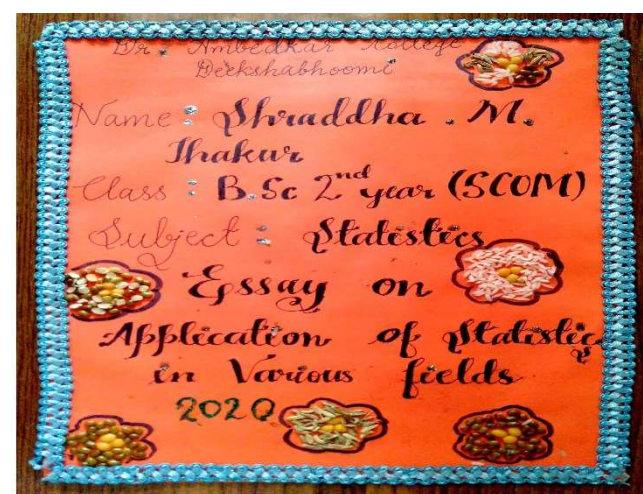 Dr. Ambedkar College
Deekshabhoomi
Name : Shraddha . M.
Thakur
Class : B.Sc 2nd year (SCOM)
Subject : Statistics
Essay on
Application of Statistics
in Various fields
2020